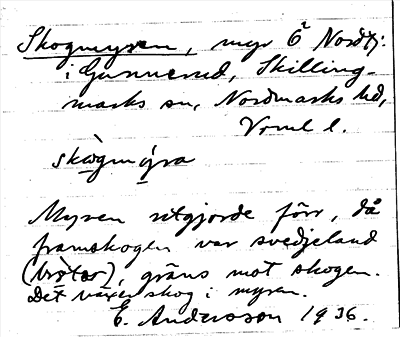 Skogmyren, myr Ö Nordtj.
i Gunnerud, Skilling-
marks sn, Nordmarks hd,
Vrml l.
skògmy�आra
Myren utgjorde förr, då
framskogen var svedjeland
(bråtar), gräns mot skogen.
Det växer skog i myren.
E. Andersson 1936.